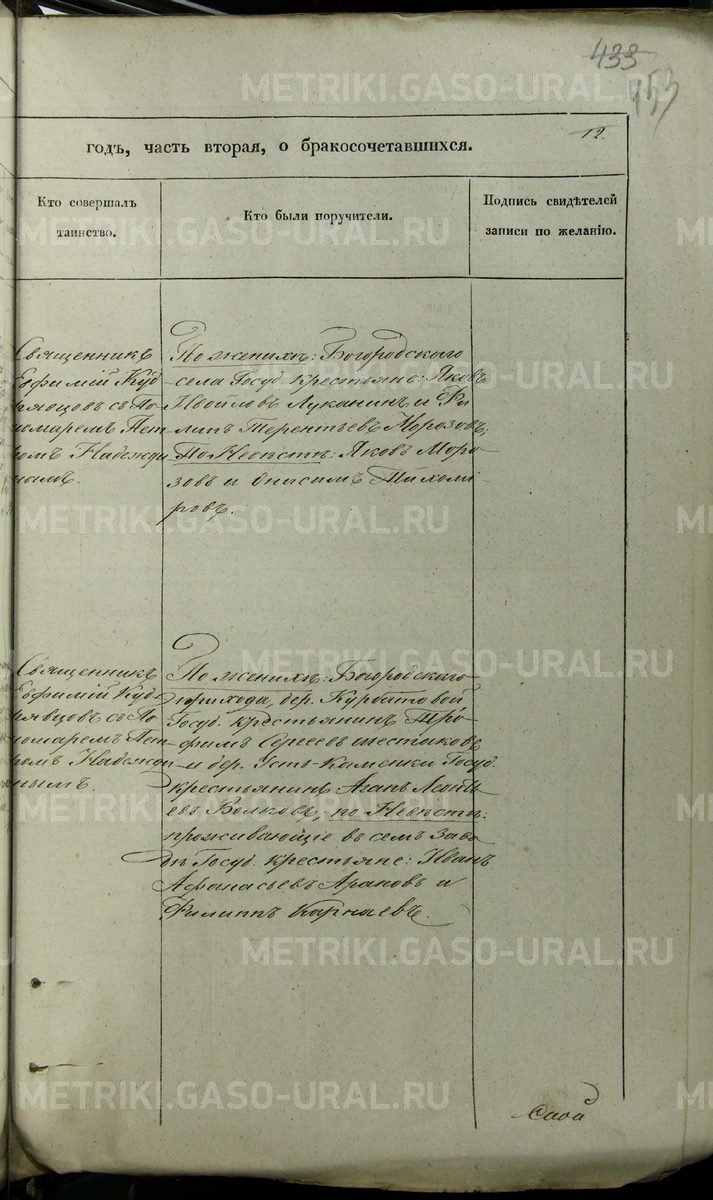 433
453
12.
годъ, часть вторая, о бракосочетавшихся.
Кто совершалъ
таинство.
Кто были поручители.
Подпись свидѣтелей
записи по желанію.
Священникъ
Ефимій Куд-
рявцовъ съ По-
номаремъ Пет-
ромъ Надежди-
нымъ.
По женихѣ: Богородскаго
села Госуд. крестьяне: Яковъ
Луканинъ и Фи-
липъ Терентьевъ Морозовъ;
По Невѣстѣ: Яковъ Моро-
зовъ и Онисимъ Тихоми-
ровъ.
Священникъ
Ефимій Куд-
рявцовъ съ По-
номаремъ Пет-
ромъ Надежди-
нымъ.
По женихѣ: Богородскаго
прихода, дер. Курбатовой
Госуд. крестьянинъ Тро-
фимъ Сергеевъ Шестаковъ
и дер. Усть-Каменки Госуд.
крестьянинъ Агапъ Леонть-
евъ Волковъ; по Невѣстѣ:
проживающіе въ семъ Заво-
дѣ Госуд. крестьяне: Иванъ
Афанасьевъ Араповъ и
Филиппъ Карнаевъ.
METRIKI.GASO-URAL.RU